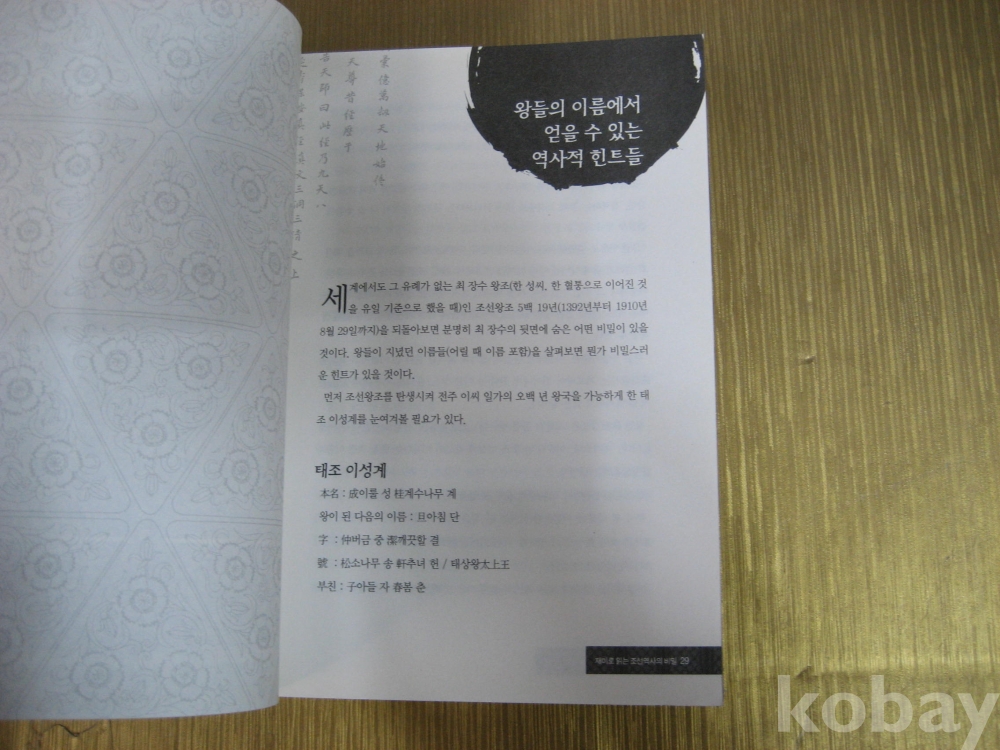 彙傳萬祕天地始傳
天尊昔往塵于
告天師曰此經乃九天八
三洞三清之上
왕들의 이름에서
얻을 수 있는
역사적 힌트들
세계에서도 그 유례가 없는 최 장수 왕조(한 성씨, 한 혈통으로 이어진 것
을 유일 기준으로 했을 때)인 조선왕조 5백 19년(1392년부터 1910년
8월 29일까지)을 되돌아보면 분명히 최 장수의 뒷면에 숨은 어떤 비밀이 있을
것이다. 왕들이 지녔던 이름들(어릴 때 이름 포함)을 살펴보면 뭔가 비밀스러
운 힌트가 있을 것이다.
먼저 조선왕조를 탄생시켜 전주 이씨 일가의 오백 년 왕국을 가능하게 한 태
조 이성계를 눈여겨볼 필요가 있다.
태조 이성계
本名 : 成이룰 성 桂계수나무 계
왕이 된 다음의 이름 : 旦아침 단
字 : 仲버금 중 潔깨끗할 결
號 : 松소나무 송 軒추녀 헌 / 태상왕太上王
부친 : 子아들 자 春봄 춘
재미로 읽는 조선역사의 비밀 29
kobay